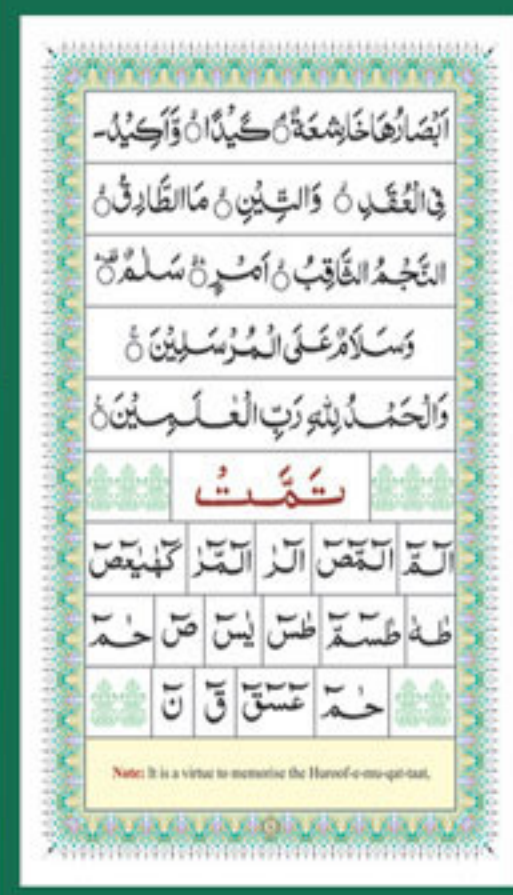 اَبْصَارُهَاخَاشِعَةٌ ۘ كَيْدًا ۙ وَّاَكِيْدُ
فِى الْعُقَدِ ۙ وَالتِّيْنِ ۙ مَاالطَّارِقُ ۙ
النَّجْمُ الثَّاقِبُ ۙ اَمْرٍ ۛ سَلٰمٌ ۛ
وَسَلَامٌ عَلَى الْمُرْسَلِيْنَ ۚ
وَالْحَمْدُ لِلّٰهِ رَبِّ الْعٰلَمِيْنَ
تَمَّتْ
الٓمّٓ الٓمّٓصٓ الٓرٰ الٓمّٓرٰ كٓهٰيٰعٓصٓ
طٰهٰ طٰسٓمّٓ طٰسٓ يٰسٓ صٓ حٰمٓ
حٰمٓ عٓسٓقٓ قٓ نٓ
Note: It is a virtue to memorise the Huroof-e-mu-qat-taat,